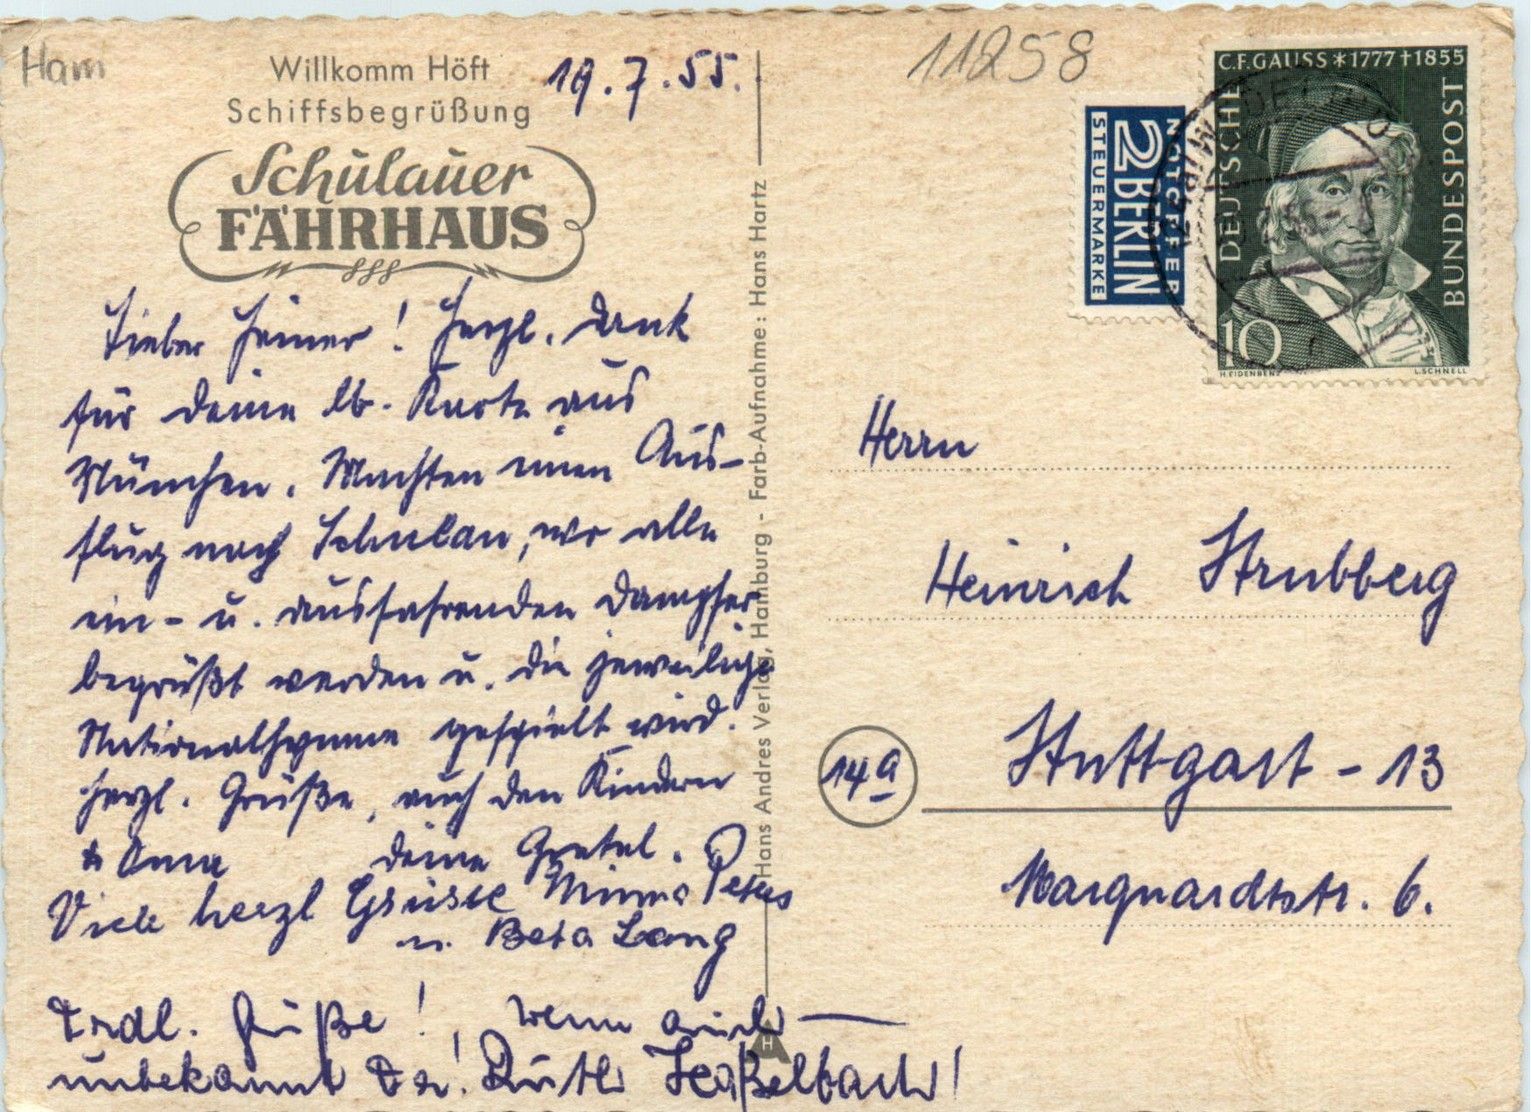 Ham
Willkomm Höft
Schiffsbegrüßung
Schulauer
FÄHRHAUS
19.7.55.
Lieber Heiner! Herzl. Dank
für Deine lb. Karte aus
München. Machten einen Aus-
flug nach Schulau, wo alle
ein- u. ausfahrenden Dampfer
begrüßt werden u. die jeweilige
Nationalhymne gespielt wird.
Herzl. Grüße, auch den Kindern
& Oma Deine Gretel.
Viele herzl Grüsse Minna Peters
u. Beta Lang
Frdl. Grüße! Wenn auch —
unbekannt Ruth Haßelbach!
Hans Andres Verlag, Hamburg - Farb-Aufnahme: Hans Hartz
H
11258
NOTOPFER
2 BERLIN
STEUERMARKE
C.F.GAUSS *1777 †1855
DEUTSCHE
BUNDESPOST
10
H.EIDENBENZ
L.SCHNELL
Herrn
Heinrich Strubberg
14a
Stuttgart - 13
Marquardtstr. 6.